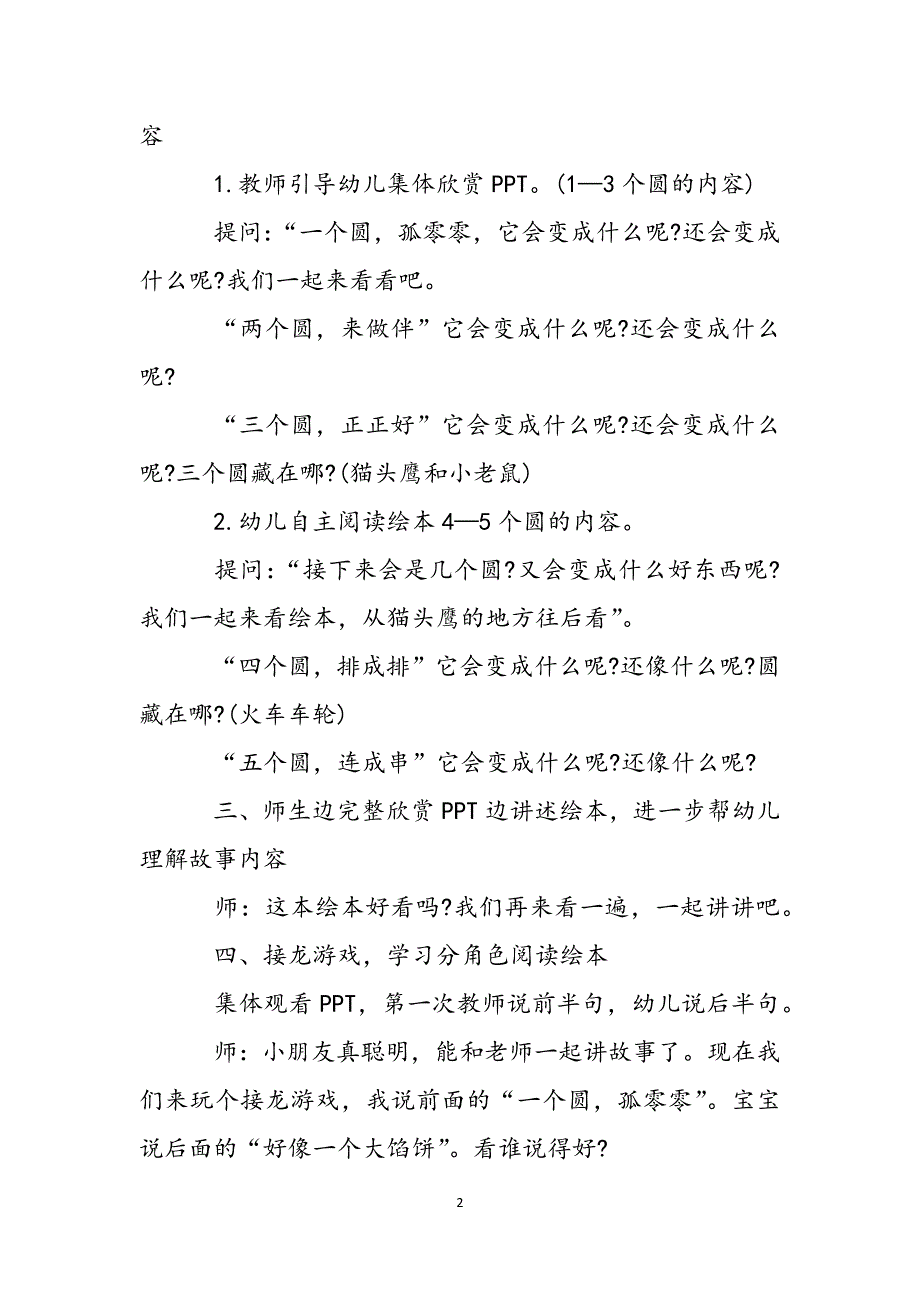 容
1.教师引导幼儿集体欣赏PPT。(1—3个圆的内容)
提问：“一个圆，孤零零，它会变成什么呢?还会变成
什么呢?我们一起来看看吧。
“两个圆，来做伴”它会变成什么呢?还会变成什么
呢?
“三个圆，正正好”它会变成什么呢?还会变成什么
呢?三个圆藏在哪?(猫头鹰和小老鼠)
2.幼儿自主阅读绘本4—5个圆的内容。
提问：“接下来会是几个圆?又会变成什么好东西呢?
我们一起来看绘本，从猫头鹰的地方往后看”。
“四个圆，排成排”它会变成什么呢?还像什么呢?圆
藏在哪?(火车车轮)
“五个圆，连成串”它会变成什么呢?还像什么呢?
三、师生边完整欣赏PPT边讲述绘本，进一步帮幼儿
理解故事内容
师：这本绘本好看吗?我们再来看一遍，一起讲讲吧。
四、接龙游戏，学习分角色阅读绘本
集体观看PPT，第一次教师说前半句，幼儿说后半句。
师：小朋友真聪明，能和老师一起讲故事了。现在我
们来玩个接龙游戏，我说前面的“一个圆，孤零零”。宝宝
说后面的“好像一个大馅饼”。看谁说得好?
2